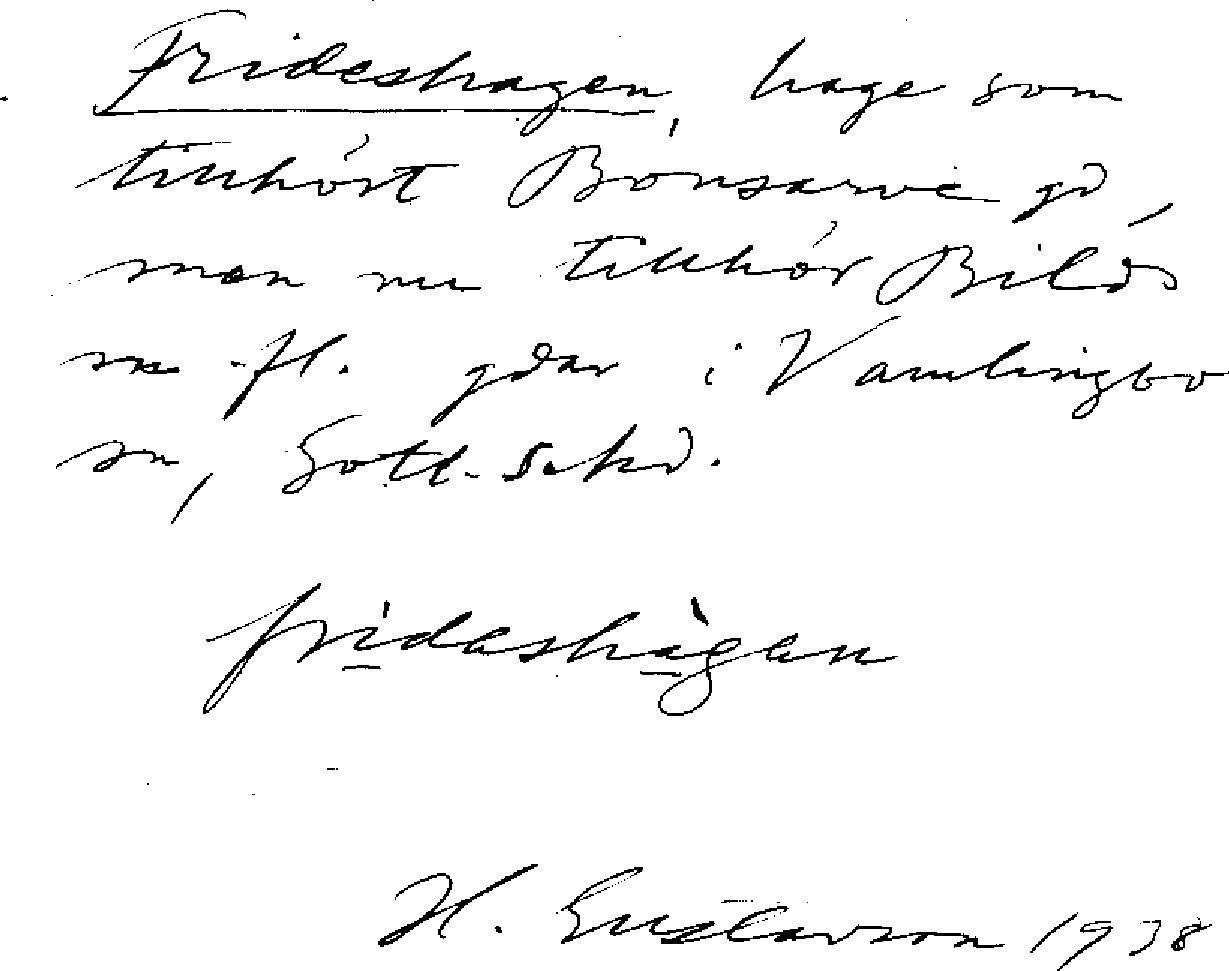 Frideshagen, hage som
tillhört Bonsarve gd,
men nu tillhör Bilds
m fl. gdar i Vamlingbo
sn, Gotl. S. hd.
fridashagen
H. Gustavson 1938